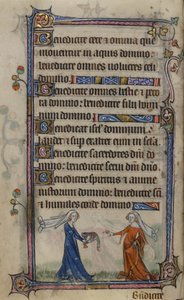 Benedicite cete et omnia que
mouentur in aquis domino:
benedicite omnes uolucres celi
domino
Benedicite omnes bestie et pe
cora domino: benedicite filii homi
num domino
Benedicat israel dominum:
laudet et superexaltet eum in secula
Benedicite sacerdotes domini do
mino: benedicite serui domini domino
Benedicite spiritus et anime
iustorum domino: benedicite sancti
et humiles corde domino
Benedicite